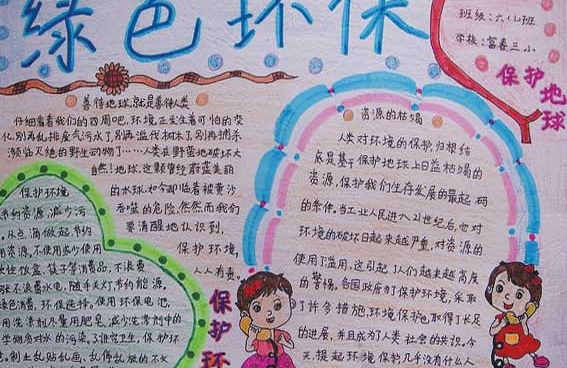 绿色环保
班级:六(4)班
学校:富春三小
保护地球
善待地球,就是善待人类
仔细看看我们的四周吧,环境正发生着可怕的变
化,别再乱排废气污水了,别再滥伐树木了,别再捕杀
濒临灭绝的野生动物了……人类在野蛮地破坏大
自然!地球,这颗曾经蔚蓝美丽
的水球,如今却临着被黄沙
吞噬的危险,然而我们
要清醒地认识到,
保护环境,
人人有责。
保护环境
节约资源,减少污
从点滴做起,节约
用资源,不使用或少使用
性饭盒、筷子等消费品,不浪费
张不浪费水电,随手关灯,节约能源,
绿色消费,环保选择,使用环保电池,
用洗涤剂尽量用肥皂,减少洗涤剂中的
学物质对水的污染,了讲究卫生,保护环
意,制止乱贴乱画、乱停乱放的不文
保护环
资源的枯竭
人类对环境的保护,归根结
底是基于保护地球上日益枯竭的
资源,保护我们生存发展的最起码
的条件。当工业人民进入21世纪后,也对
环境的破坏日起来越严重,对资源的
使用了滥用,这引起了人们越来越高度
的警惕,各国政府为了保护环境,采取
了许多措施,环境保护也取得了长足
的进展,并且成为了人类社会的共识。今
天,提起环境保护几乎没有什么人